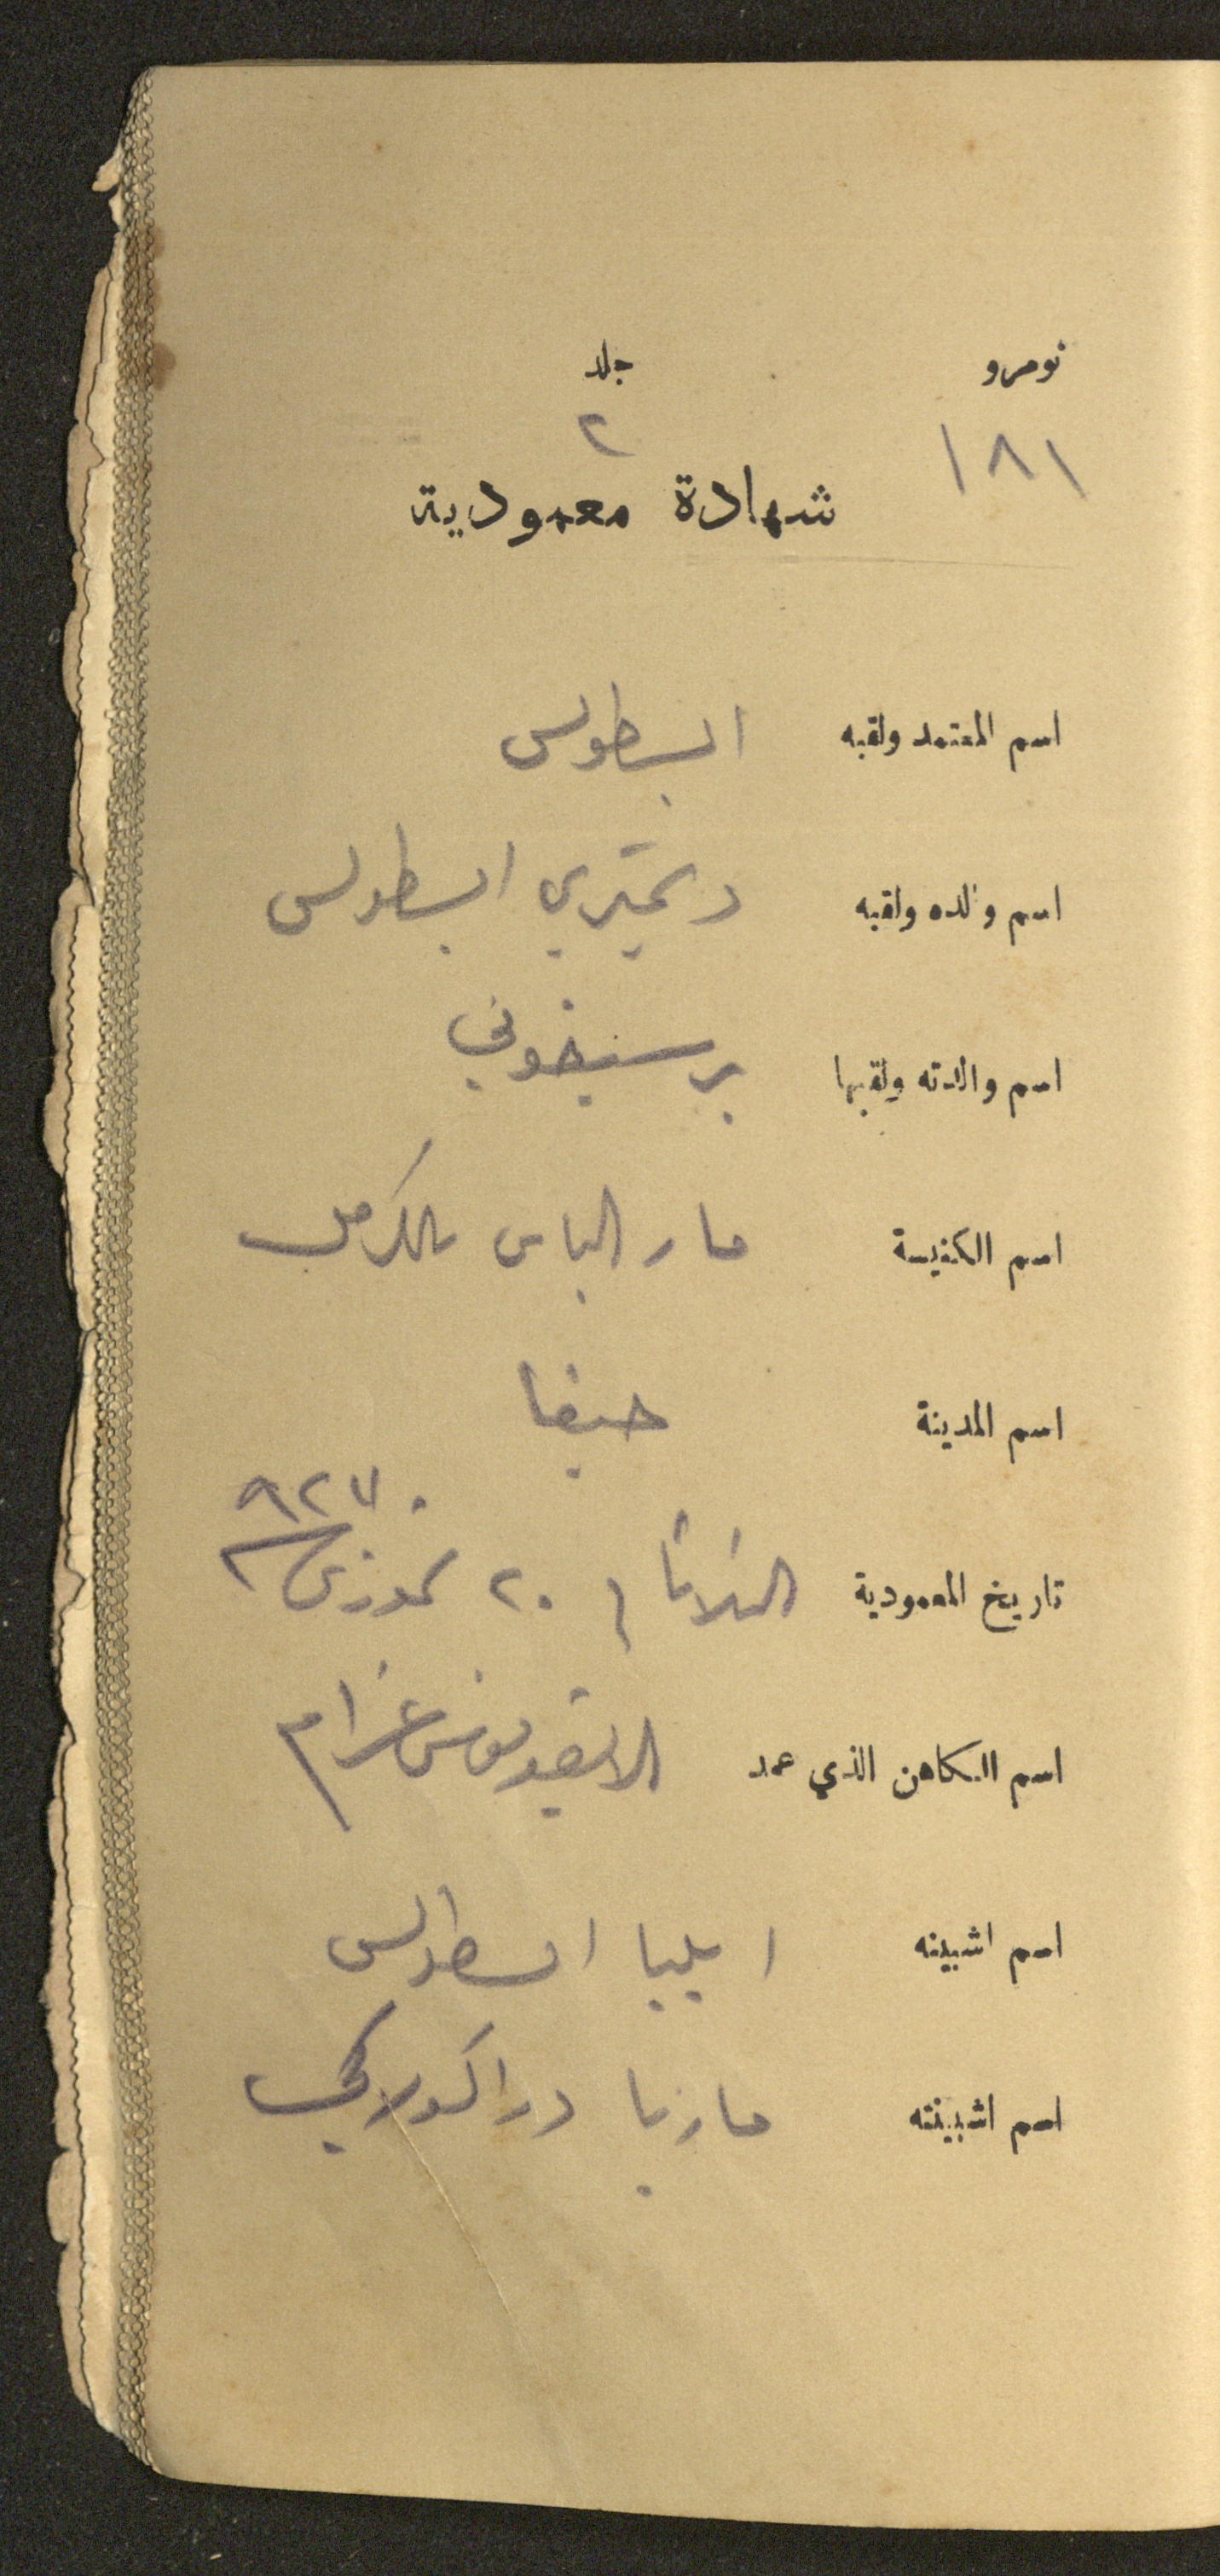 نومرو جلد
١٨١ ٢
شهادة معمودية
اسم المعتمد ولقبه ابسطولس
اسم والده ولقبه ديمتري ابسطولس
اسم والدته ولقبها برسيفوني
اسم الكنيسة مار الياس بالكرمل
اسم المدينة حيفا
تاريخ المعمودية الثلاثا ٢٠ تموز ٩٢٧
اسم الكاهن الذي عمد
اسم اشبينه ايليا ابسطولس
اسم اشبينته ماريا دراكولاكي